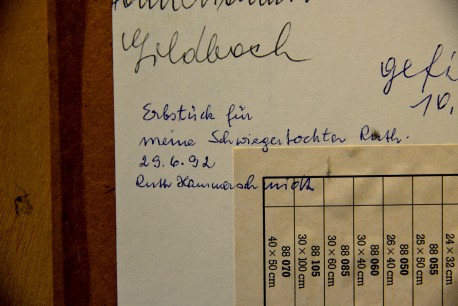 Gildbach
gefi
10.
Erbstück für
meine Schwiegertochter Ruth.
29.6.92
Ruth Hammerschmidt
24 x 32 cm
88 055
25 x 50 cm
88 050
26 x 40 cm
88 060
30 x 40 cm
88 085
30 x 60 cm
88 105
30 x 100 cm
88 070
40 x 50 cm